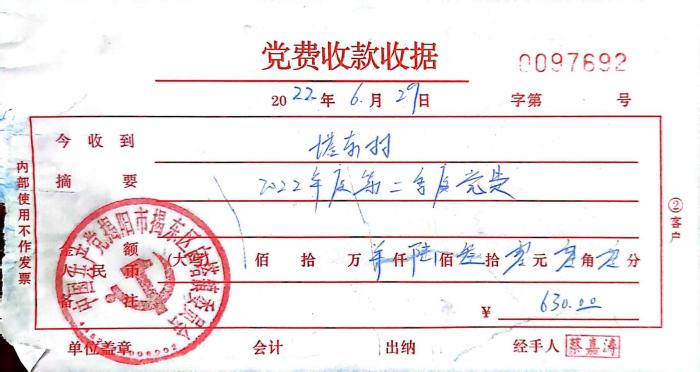 党费收款收据
0097692
2022年6月29日 字第 号
今收到 塔东村
摘要 2022年度第二季度党费
金额 人民币 (大写) 佰 拾 万 仟陆佰叁拾零元零角零分
备注 ¥ 630.00
单位盖章 会计 出纳 经手人 蔡嘉涛
内部使用不作发票
②客户
中国共产党揭阳市揭东区